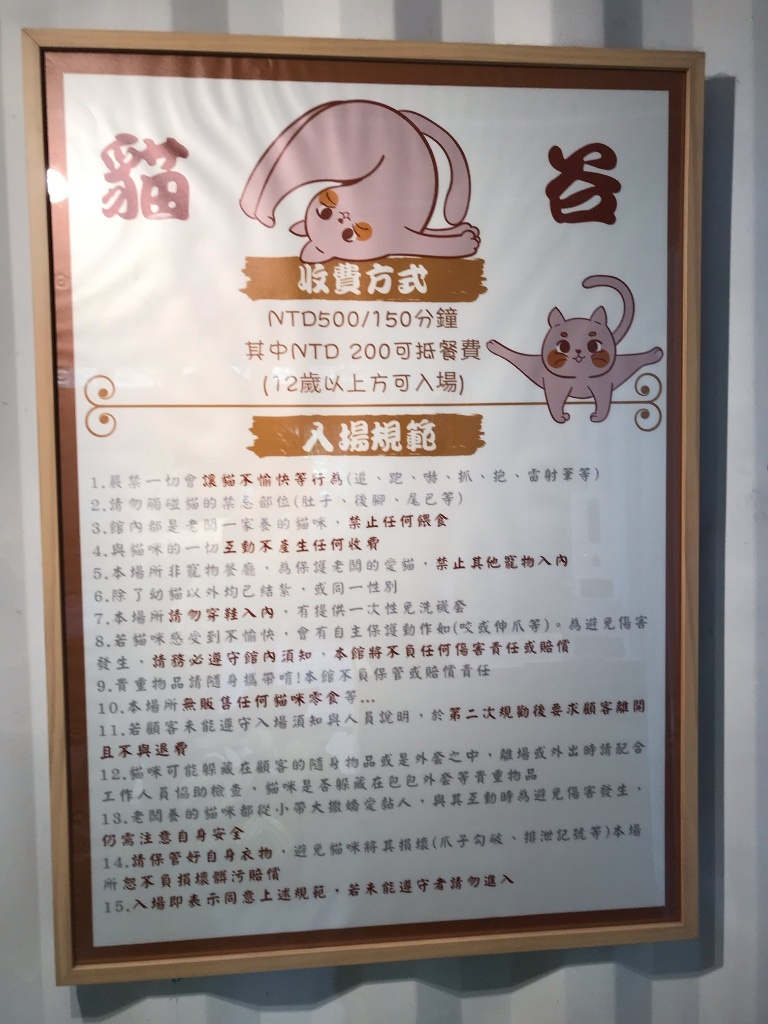 貓 谷
收費方式
NTD500/150分鐘
其中NTD 200可抵餐費
(12歲以上方可入場)
入場規範
1.嚴禁一切會讓貓不愉快等行為(追、跑、嚇、抓、抱、雷射筆等)
2.請勿觸碰貓的禁忌部位(肚子、後腳、尾巴等)
3.館內都是老闆一家養的貓咪，禁止任何餵食
4.與貓咪的一切互動不產生任何收費
5.本場所非寵物餐廳，為保護老闆的愛貓，禁止其他寵物入內
6.除了幼貓以外均已結紮，或同一性別
7.本場所請勿穿鞋入內，有提供一次性免洗襪套
8.若貓咪感受到不愉快，會有自主保護動作如(咬或伸爪等)。為避免傷害
發生，請務必遵守館內須知，本館將不負任何傷害責任或賠償
9.貴重物品請隨身攜帶唷!本館不負保管或賠償責任
10.本場所無販售任何貓咪零食等...
11.若顧客未能遵守入場須知與人員說明，於第二次規勸後要求顧客離開
且不與退費
12.貓咪可能躲藏在顧客的隨身物品或是外套之中，離場或外出時請配合
工作人員協助檢查，貓咪是否躲藏在包包外套等貴重物品
13.老闆養的貓咪都從小帶大撒嬌愛黏人，與其互動時為避免傷害發生，
仍需注意自身安全
14.請保管好自身衣物，避免貓咪將其損壞(爪子勾破、排泄記號等)本場
所恕不負損壞髒污賠償
15.入場即表示同意上述規範，若未能遵守者請勿進入